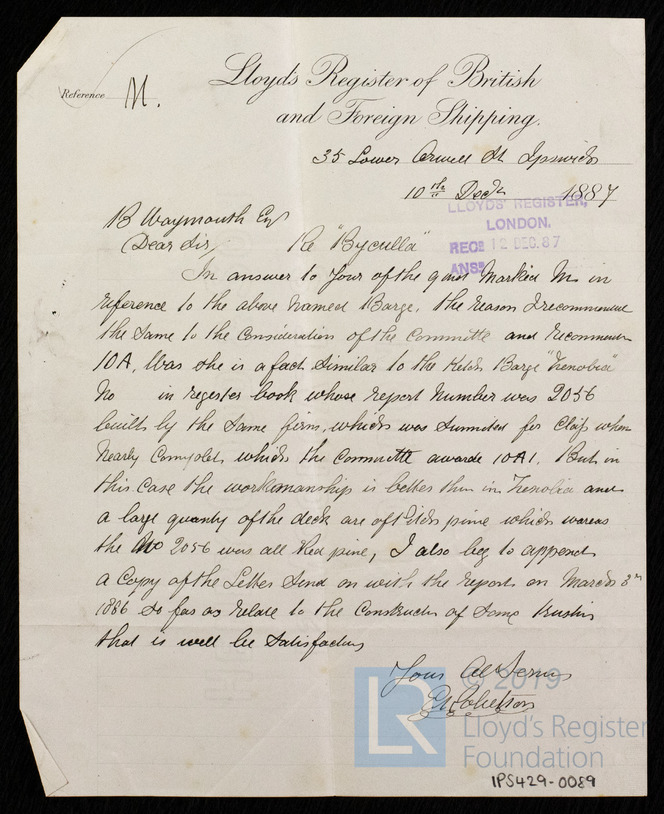 Lloyd's Register of British
and Foreign Shipping.
Reference M.
35 Lower Orwell St Ipswich
10th Decr 1887
LLOYDS' REGISTER,
LONDON.
RECD 12 DEC. 87
ANSD
B Waymouth Esq
Dear Sir,
Re "Byculla"
In answer to Your of the 9 inst Marked M in
reference to the above Named Barge, the reason I recommend
the Same to the Consideration of the Committe and recommend
10A, Was she is a fact Similar to the Ketch Barge "Zenobia"
No in register book whose report Number was 2056
built by the Same firm, which was Summited for Class when
Nearly Complet which the Committe awarde 10A1. But in
this Case the workmanship is better then in Zenobia and
a large quanty of the deck are of Pitch pine which wareas
the No 2056 was all Red pine, I also beg to append
a Copy of the Letter Send on with the report on March 3rd
1886 So far as relate to the Constructer of Same trusting
that is will be Satisfactory
Your Ob Servt
© 2019
LR
Lloyd's Register
Foundation
IPS429-0089